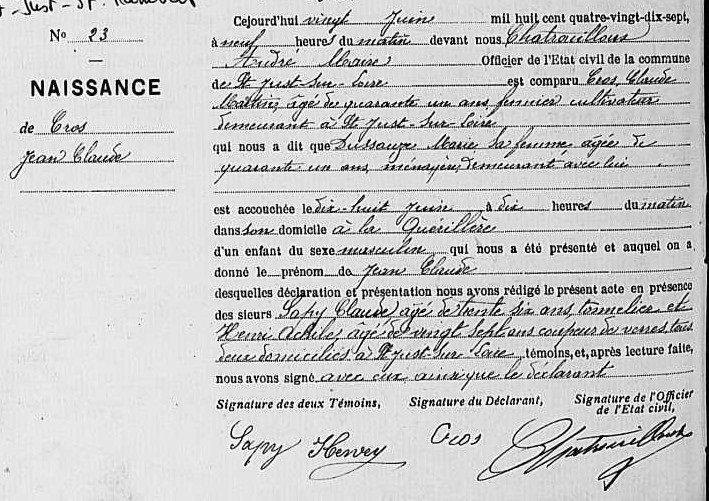 St-Just-St-Rambert
N° 23
NAISSANCE
de Cros
Jean Claude
Cejourd'hui vingt Juin mil huit cent quatre-vingt-dix-sept,
à neuf heures du matin devant nous Chatrouillons
André Maire Officier de l'Etat civil de la commune
de St Just-sur-Loire est comparu Cros, Claude
Mathieu, âgé de quarante un ans, fermier cultivateur
demeurant à St Just-sur-Loire
qui nous a dit que Dussauze Marie, sa femme, âgée de
quarante un ans, ménagère, demeurant avec lui
est accouchée le dix-huit Juin à dix heures du matin
dans son domicile à la Quérillère
d'un enfant du sexe masculin qui nous a été présenté et auquel on a
donné le prénom de Jean Claude
desquelles déclaration et présentation nous avons rédigé le présent acte en présence
des sieurs Sapy Claude, âgé de trente six ans, tonnelier et
âgé de vingt sept ans coupeur de verres, tous
deux domiciliés à St Just-sur Loire, témoins, et, après lecture faite,
nous avons signé avec eux ainsi que le déclarant
Signature des deux Témoins, Signature du Déclarant, Signature de l'Officier
de l'Etat civil,
Sapy Hervey Cros